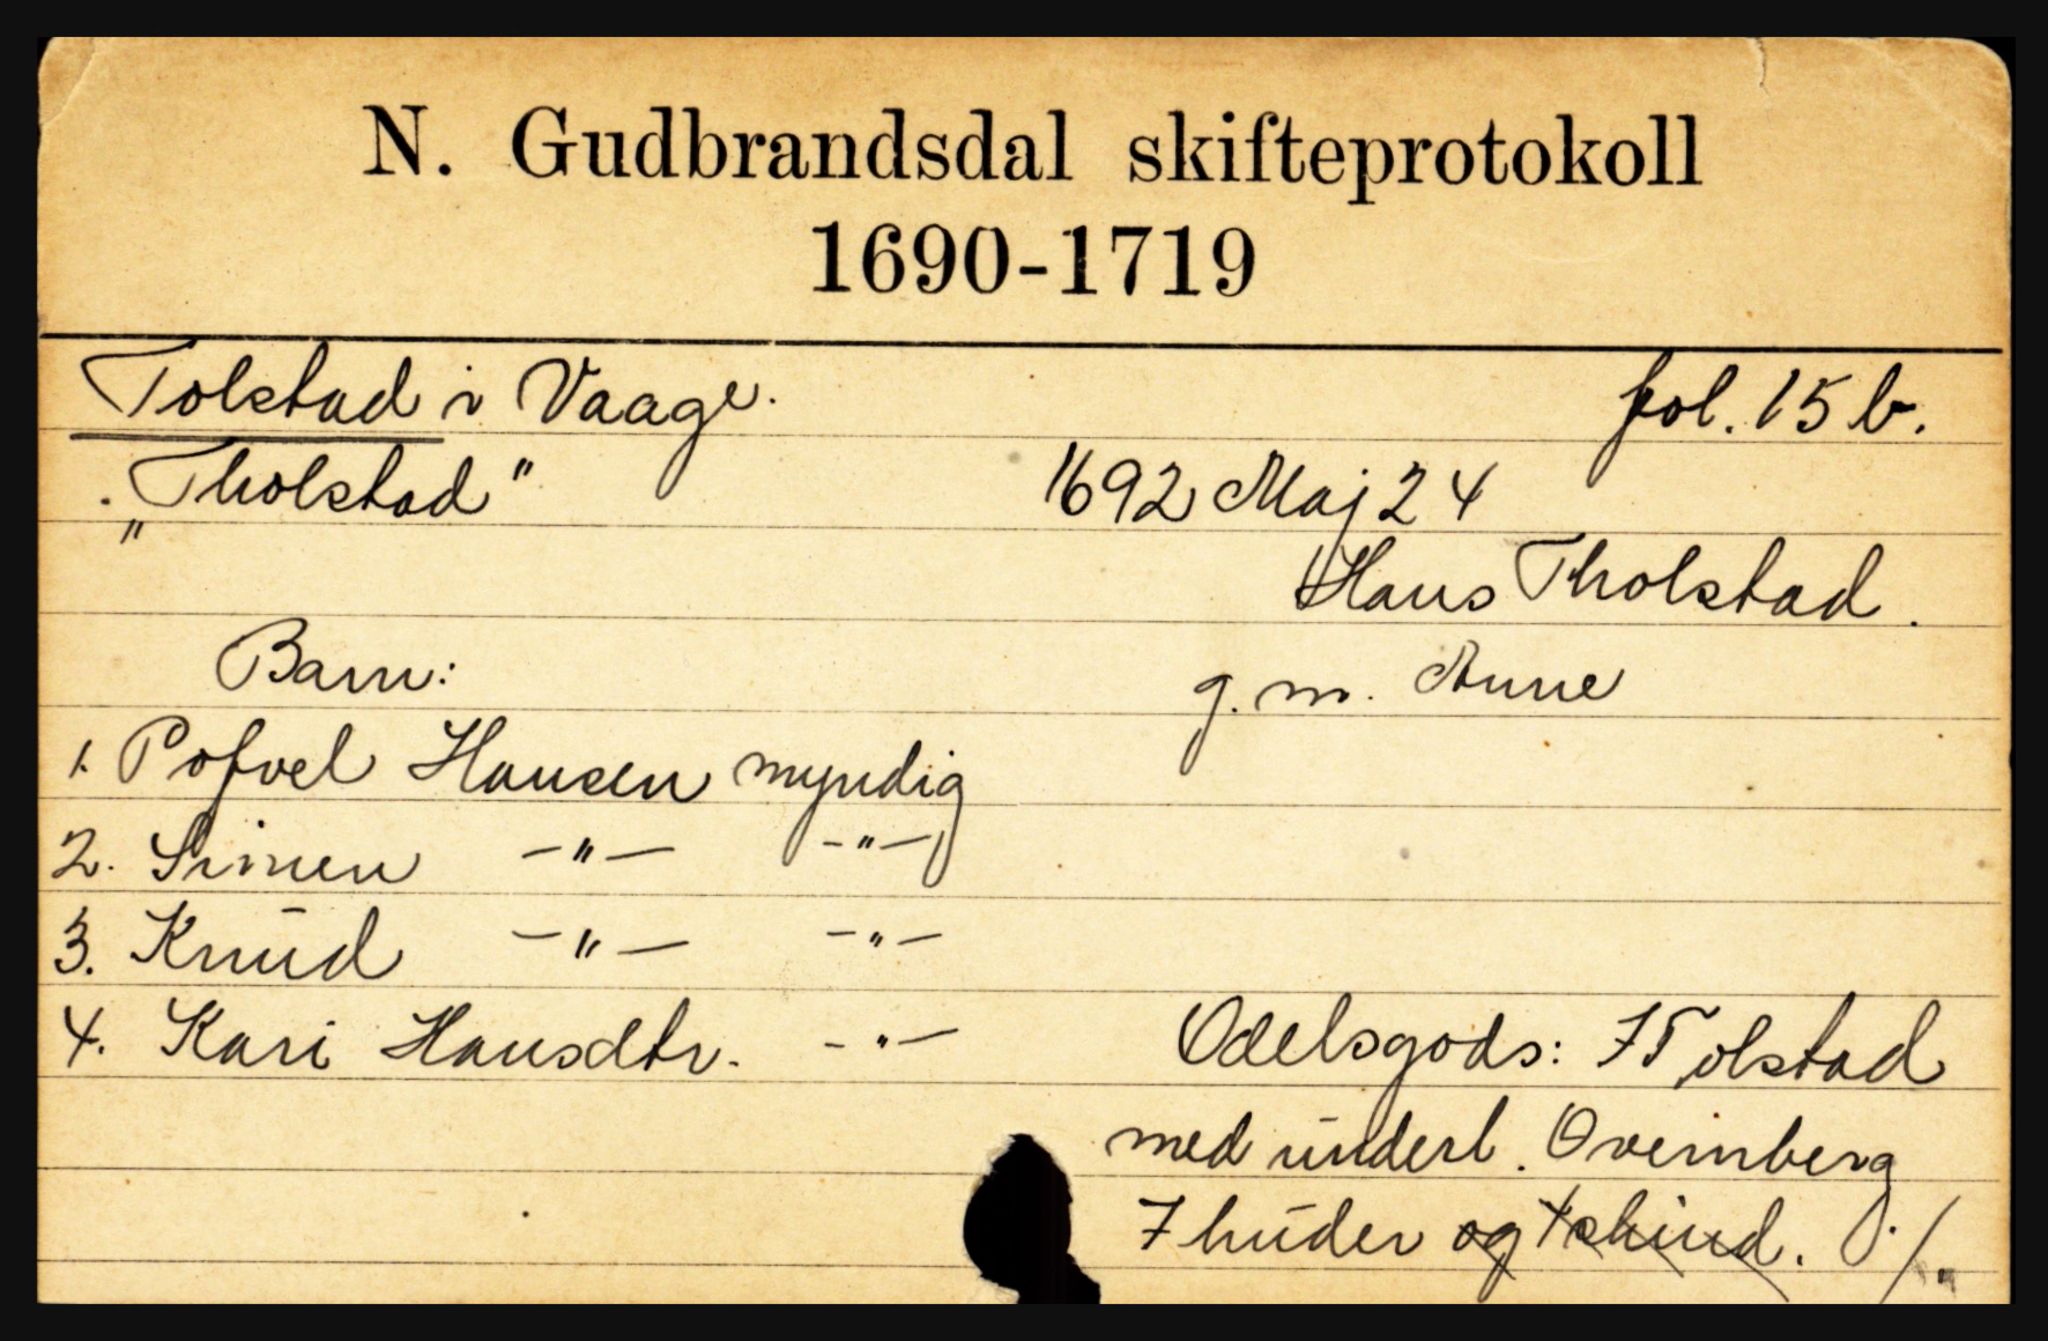 N. Gudbrandsdal skifteprotokoll
1690-1719
Tolstad i Vaage. fol. 15 b.
„Tholstad" 1692 Maj 24
Hans Tholstad.
Barn: g. m. Anne
1. Pofvel Hansen myndig
2. Simen —"— —"—
3. Knud —"— —"—
4. Kari Hansdtr. —"— Odelsgods: I Tolstad
med underl. Overnberg
7 huder og 4 skind. ./.